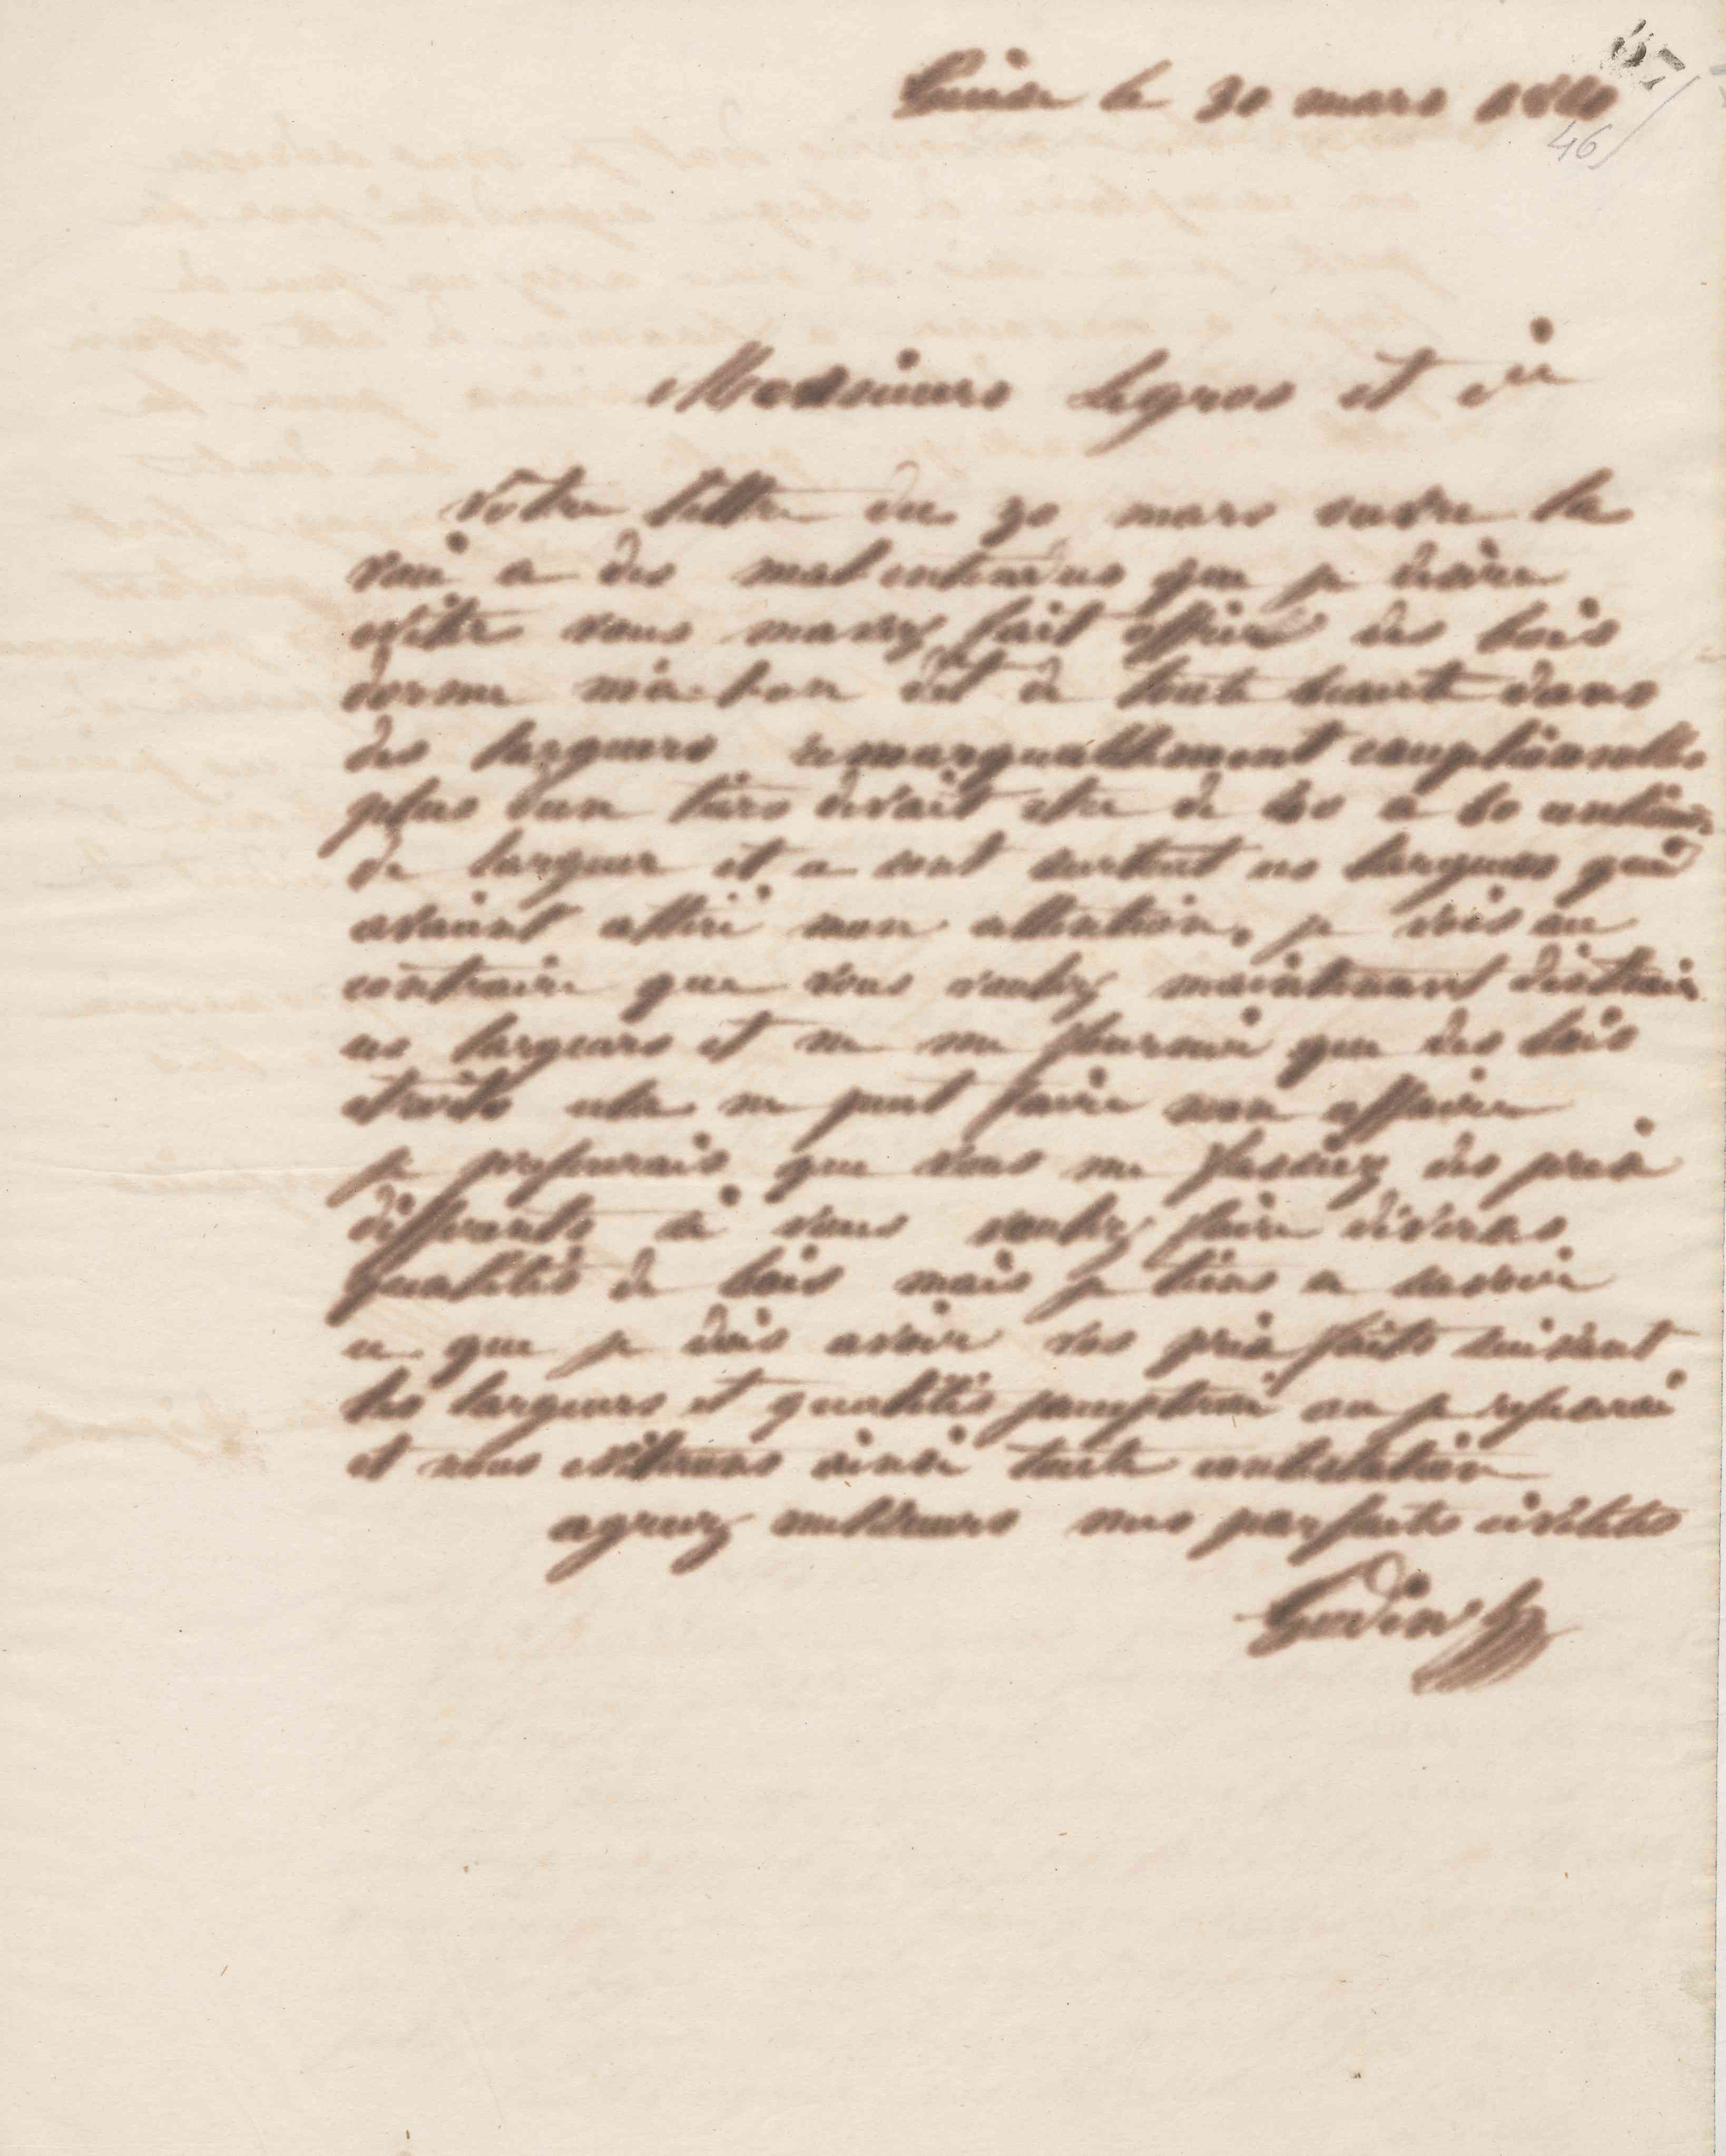 57
46
Guise le 30 mars 18
Messieurs Legros et cie
Votre lettre du 30 mars ouvre la
voie a des mal entendus que je desire
eviter vous mavez fait offrir des bois
dorme ma ton dit de toute beauté dans
des largeurs remarquablement exceptionnelles
plus dun tiers devait etre de 40 a 60 centimes
de largeur et ce sont surtout ces largeurs qui
avaient attiré mon attention. je vois au
contraire que vous voulez maintenant distraire
ces largeurs et ne me fournir que des bois
etroits cela ne peut faire mon affaire
je prefererais que vous me fassiez des prix
differents si vous voulez faire diverses
qualités de bois mais je tiens a savoir
ce que je dois avoir vos prix faits suivant
les largeurs et qualités jaccepterai ou je refuserai
et nous eviterons ainsi toute contestation
agreez messieurs mes parfaites civilités
Godin